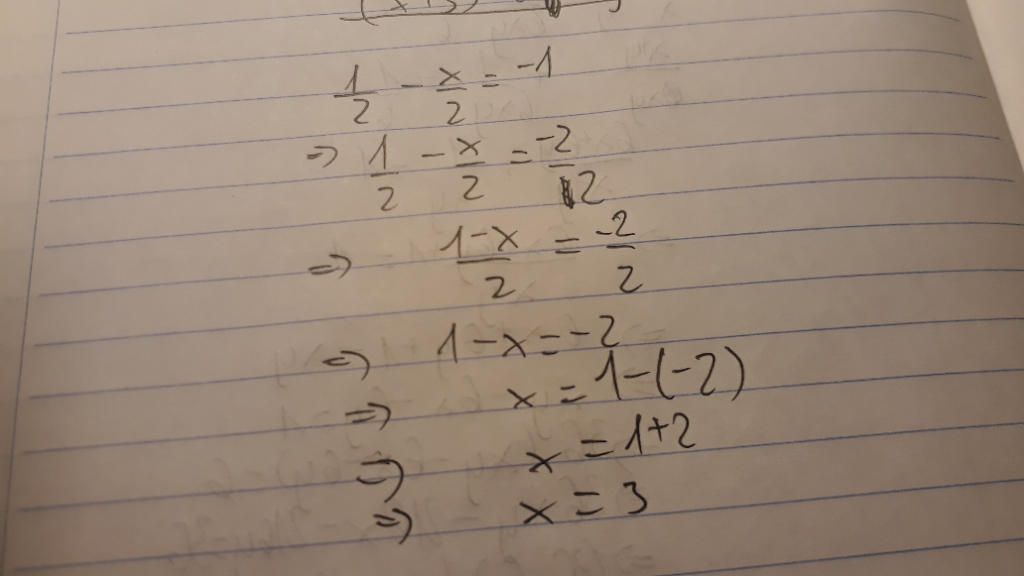 1/2 - x/2 = -1
=> 1/2 - x/2 = -2/2
=> 1-x/2 = -2/2
=> 1-x = -2
=> x = 1-(-2)
=> x = 1+2
=> x = 3